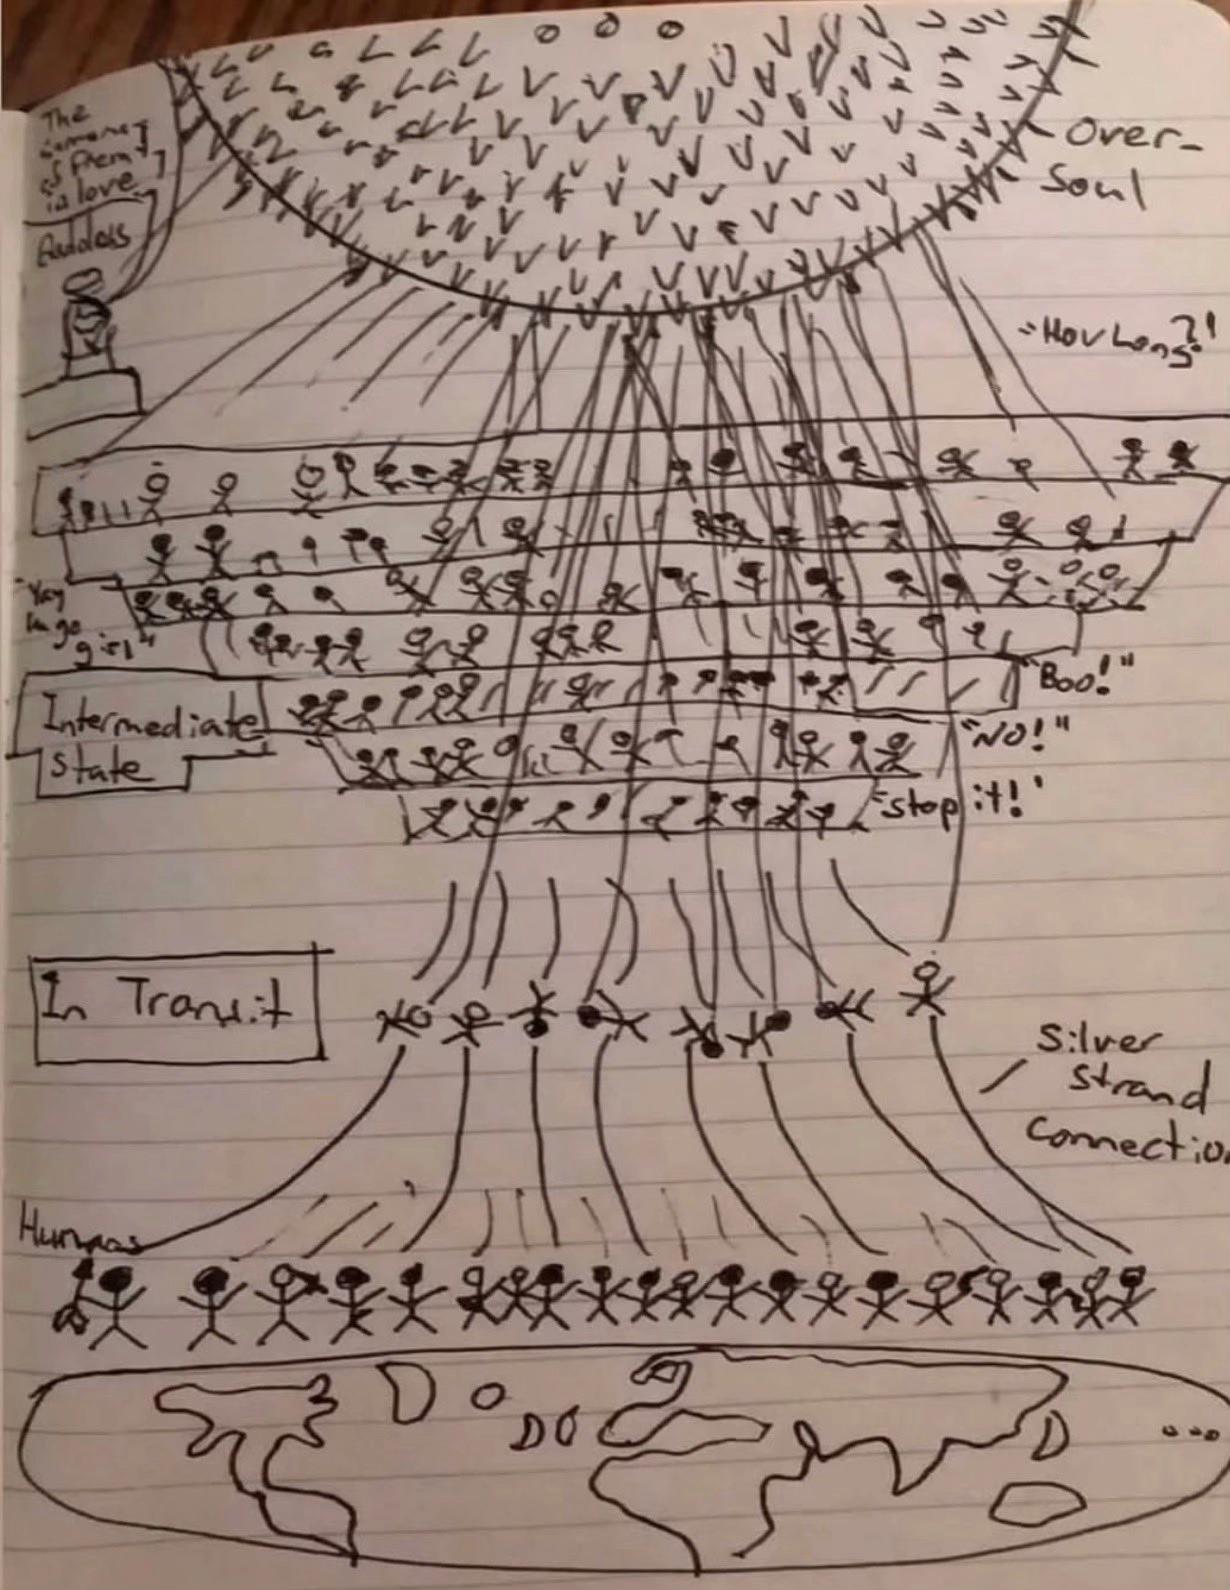 The
of them
in love
Goddess
Over-
Soul
"How Long?!
"Yay
girl"
"Boo!"
Intermediate
State
"NO!"
"Stop it!"
In Transit
Silver
Strand
Connection
Humans